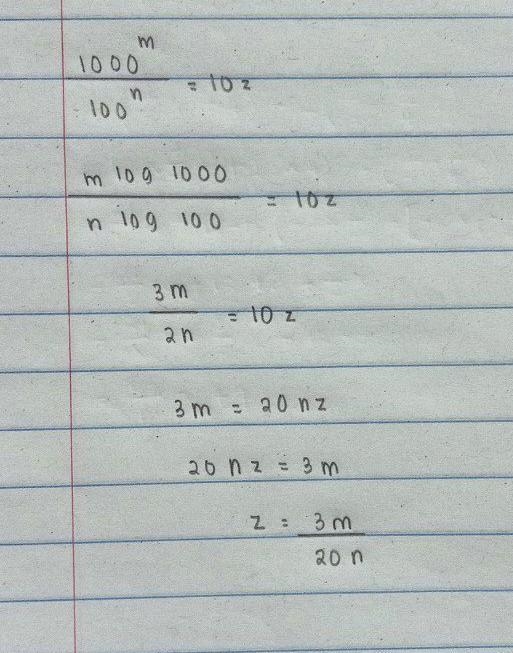 1000^m / 100^n = 10z
m log 1000 / n log 100 = 10z
3m / 2n = 10z
3m = 20nz
20nz = 3m
z = 3m / 20n